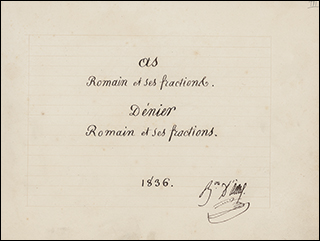 as
Romain et ses fractions.
Dénier
Romain et ses fractions.
1836.